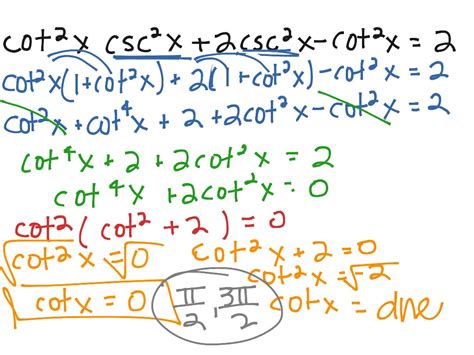 cot²x csc²x + 2csc²x - cot²x = 2
cot²x(1+cot²x) + 2(1+cot²x) - cot²x = 2
cot²x + cot⁴x + 2 + 2cot²x - cot²x = 2
cot⁴x + 2 + 2cot²x = 2
cot⁴x + 2cot²x = 0
cot2(cot² + 2) = 0
√cot²x = √0
cot x = 0
cot²x + 2 = 0
cot²x = √-2
cotx = dne
π/2, 3π/2